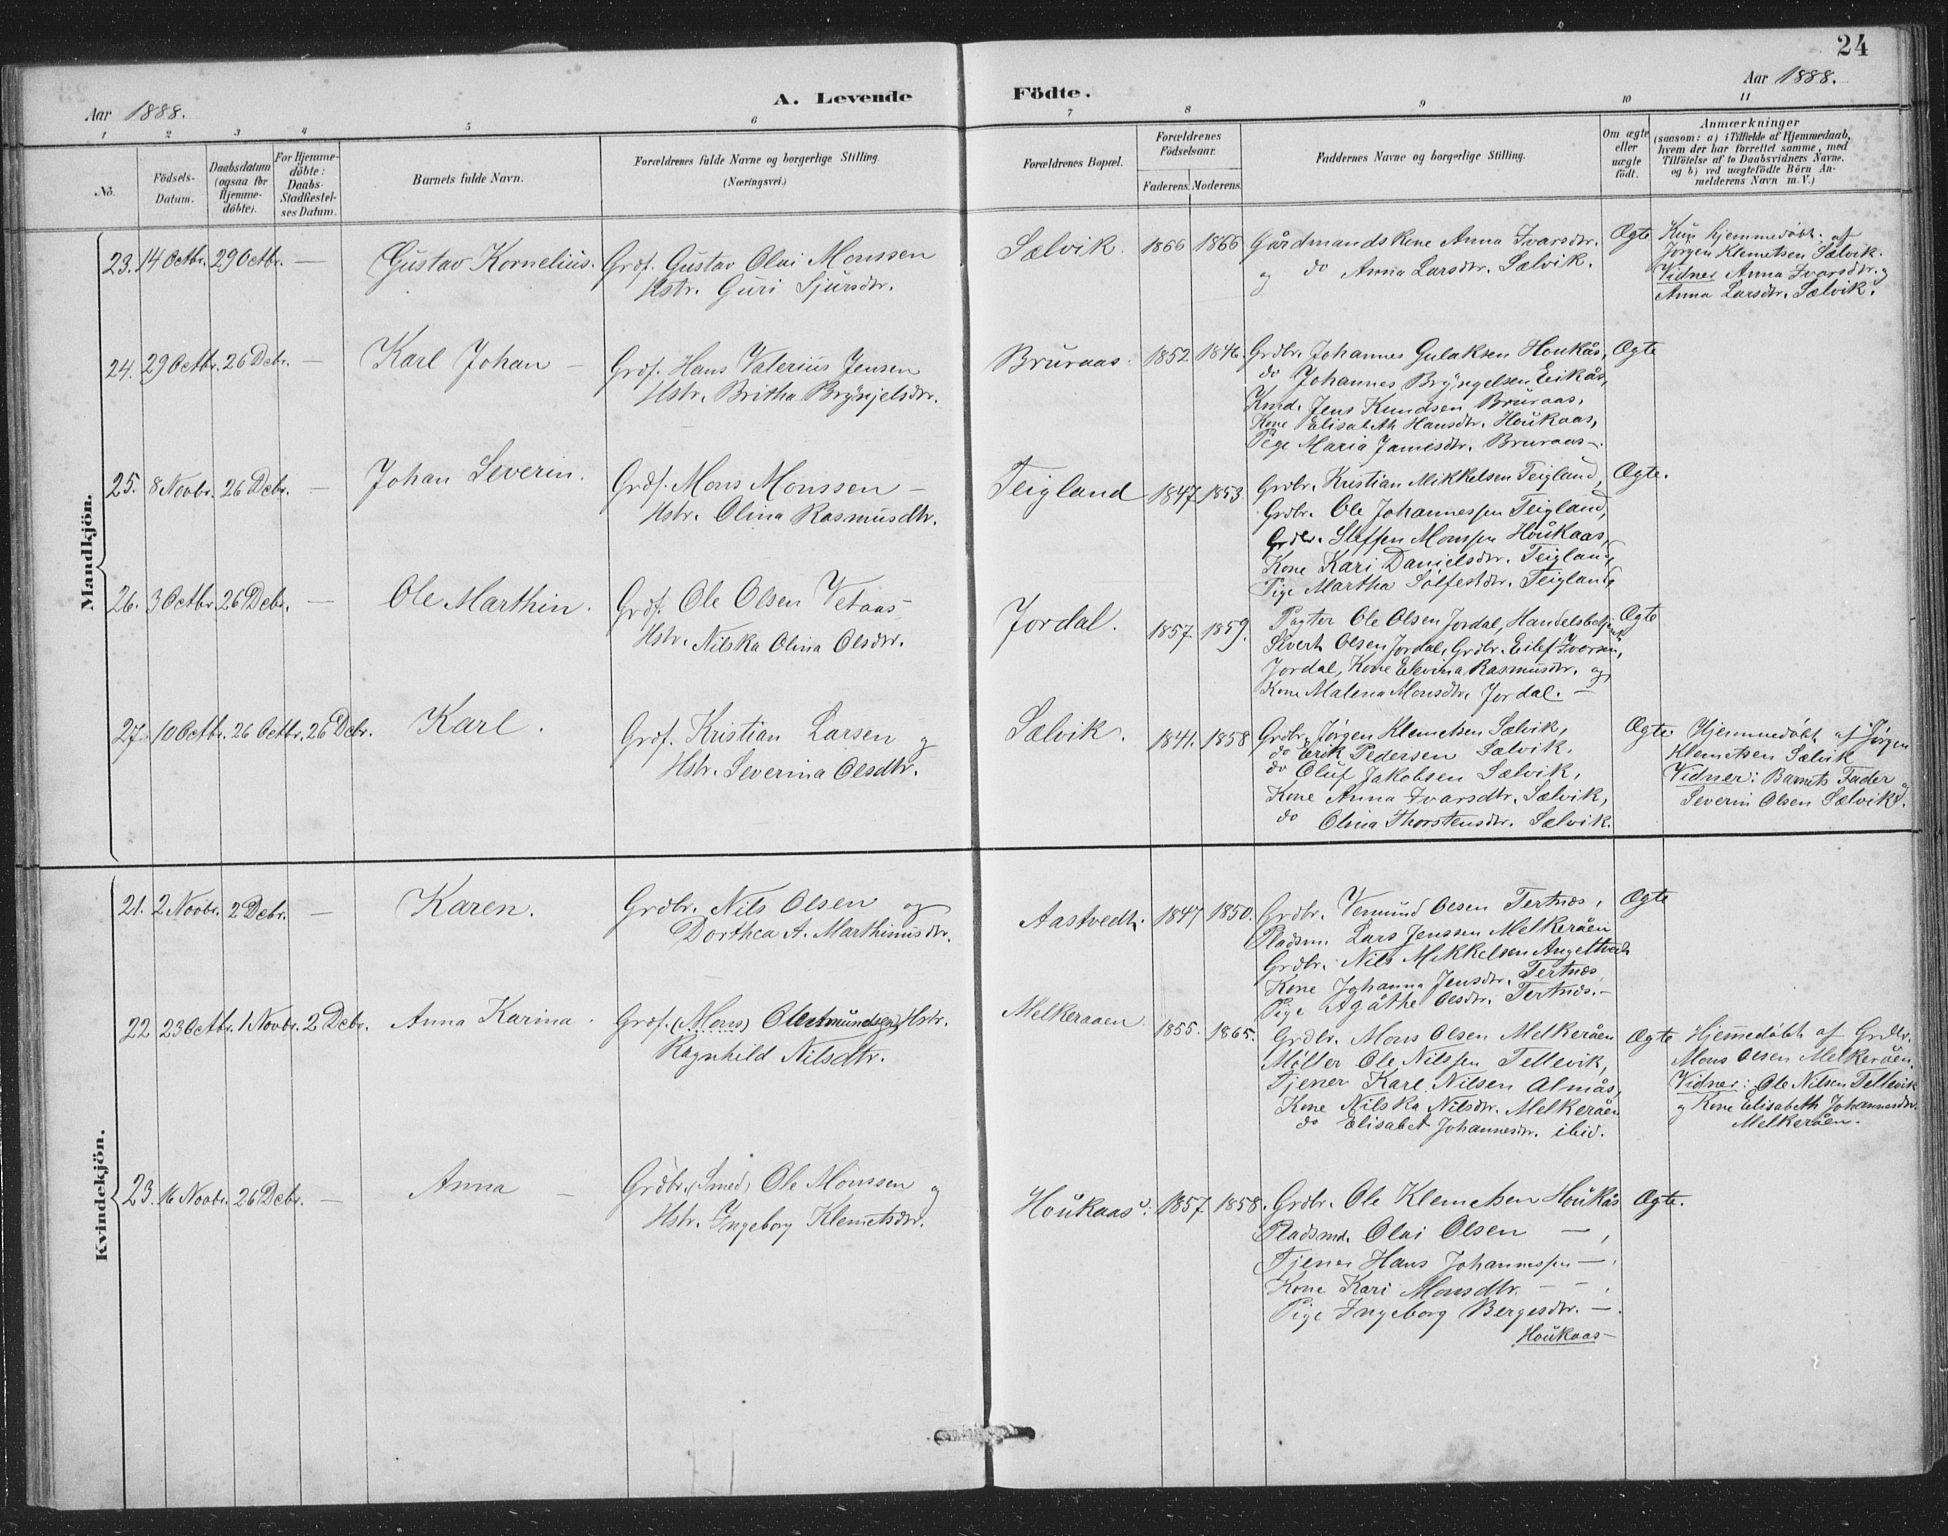 24
Aar 1888.
A. Levende
Födte.
Aar 1888.
1 2 3 4 5 6 7 8 9 10 11
No.
Födsels-Datum.
Daabsdatum (ogsaa for Hjemme-döbte).
For Hjemme-döbte: Daabs-Stadfæstel-ses Datum.
Barnets fulde Navn.
Forældrenes fulde Navne og borgerlige Stilling.
(Næringsvei.)
Forældrenes Bopæl.
Forældrenes Födselsaar.
Faderens. Moderens.
Faddernes Navne og borgerlige Stilling.
Om ægte eller uægte födt.
Anmærkninger
(saasom: a) i Tilfælde af Hjemmedaab,
hvem der har forrettet samme, med
Tilföielse af to Daabsvidners Navne.
og b) ved uægtefödte Börn An-
melderens Navn m. V.)
Mandkjön.
23. 14 Octbr. 29 Octbr. — Gustav Kornelius.
Grdf. Gustav Olai Monssen
Hstr. Guri Sjursdtr.
Sælvik. 1866 1866
Gårdmandskone Anna Ivarsdtr.
og do Anna Larsdtr. Sælvik.
Ægte
Kun hjemmedøbt. af
Jørgen Klemetsen Sælvik.
Vidner Anna Ivarsdtr. og
Anna Larsdtr. Sælvik.
24. 29 Octbr. 26 Debr. — Karl Johan —
Grdf. Hans Valerius Jensen
Hstr. Britha Brynjelsdtr.
Bruraas. 1852 1846.
Grdbr. Johannes Gulaksen Houkås,
do Johannes Bryngelsen Eikås,
Kmd. Jens Knudsen Bruraas,
Kone Elisabeth Hansdtr. Houkaas,
Pige Maria Jamesdtr. Bruraas.
Ægte
25. 8 Novbr. 26 Debr. — Johan Severin.
Grdf. Mons Monssen —
Hstr. Olina Rasmusdtr.
Teigland 1847 1853
Grdbr. Kristian Mikkelsen Teigland,
Grdbr. Ole Johannessen Teigland,
Grdbr. Steffen Monssen Houkaas,
Kone Kari Danielsdtr. Teigland,
Pige Martha Solfestdtr. Teigland,
Ægte.
26. 3 Octbr. 26 Debr. — Ole Marthin.
Grdf. Ole Olsen Vetaas —
Hstr. Nilska Olina Olsdtr.
Jordal. 1857 1859.
Ole Olsen Jordal,
Sivert Olsen Jordal, Grdbr. Eilef Ivarsen,
Jordal, Kone Elevina Rasmusdtr. og
Kone Malena Monsdtr. Jordal. —
Ægte
27. 10 Octbr. 26 Octbr. 26 Debr. Karl.
Grdf. Kristian Larsen og
Hstr. Severina Olsdtr.
Sælvik. 1841. 1858
Grdbr. Jørgen Klemetsen Sælvik,
do Erik Pedersen Sælvik.
do Oluf Jakobsen Sælvik,
Kone Anna Ivarsdtr. Sælvik,
do Olina Thorstensdtr. Sælvik.
Ægte
Hjemmedøbt af Jørgen
Klemetsen Sælvik
Vidner: Barnets Fader og
Severin Olsen Sælvik.
Kvindekjön.
21. 2 Novbr. 2 Debr. — Karen.
Grdbr. Nils Olsen og
Dorthea A. Marthinusdtr.
Aastvedt. 1847 1850.
Grdbr. Vemund Olsen Tertnæs,
Pladsm. Lars Jenssen Melkeråen
Grdbr. Nils Mikkelsen Angeltvedt
Kone Johanna Jensdtr. Tertnæs,
Pige Agåthe Olsdtr. Tertnæs. —
Ægte
22 23 Octbr. 1 Novbr. 2 Debr. Anna Karina.
Grdf. (Mons) Ole Hstr.
Ragnhild Nilsdtr.
Melkeraaen 1855. 1865.
Grdbr. Mons Olsen Melkeråen
Møller Ole Nilssen Tellevik,
Tjener Karl Nilsen Almås,
Kone Nilska Nilsdtr. Melkeråen
do Elisabet Johannesdtr. ibid.
Ægte
Hjemmedøbt af Grdbr.
Mons Olsen Melkeråen.
Vidner: Ole Nilsen Tellevik
og Kone Elisabeth Johannesdtr.
Melkeråen.
23. 16 Novbr. 26 Debr. — Anna —
Grdbr. (Smed) Ole Monssen og
Hstr. Ingeborg Klemetsdtr.
Houkaas. 1857 1858.
Grdbr. Ole Klemetsen Houkås
Pladsmd. Olai Olsen —,
Tjener Hans Johannessen —,
Kone Kari Monsdtr. — —,
Pige Ingeborg Bergesdtr. —.
Houkaas —
Ægte.